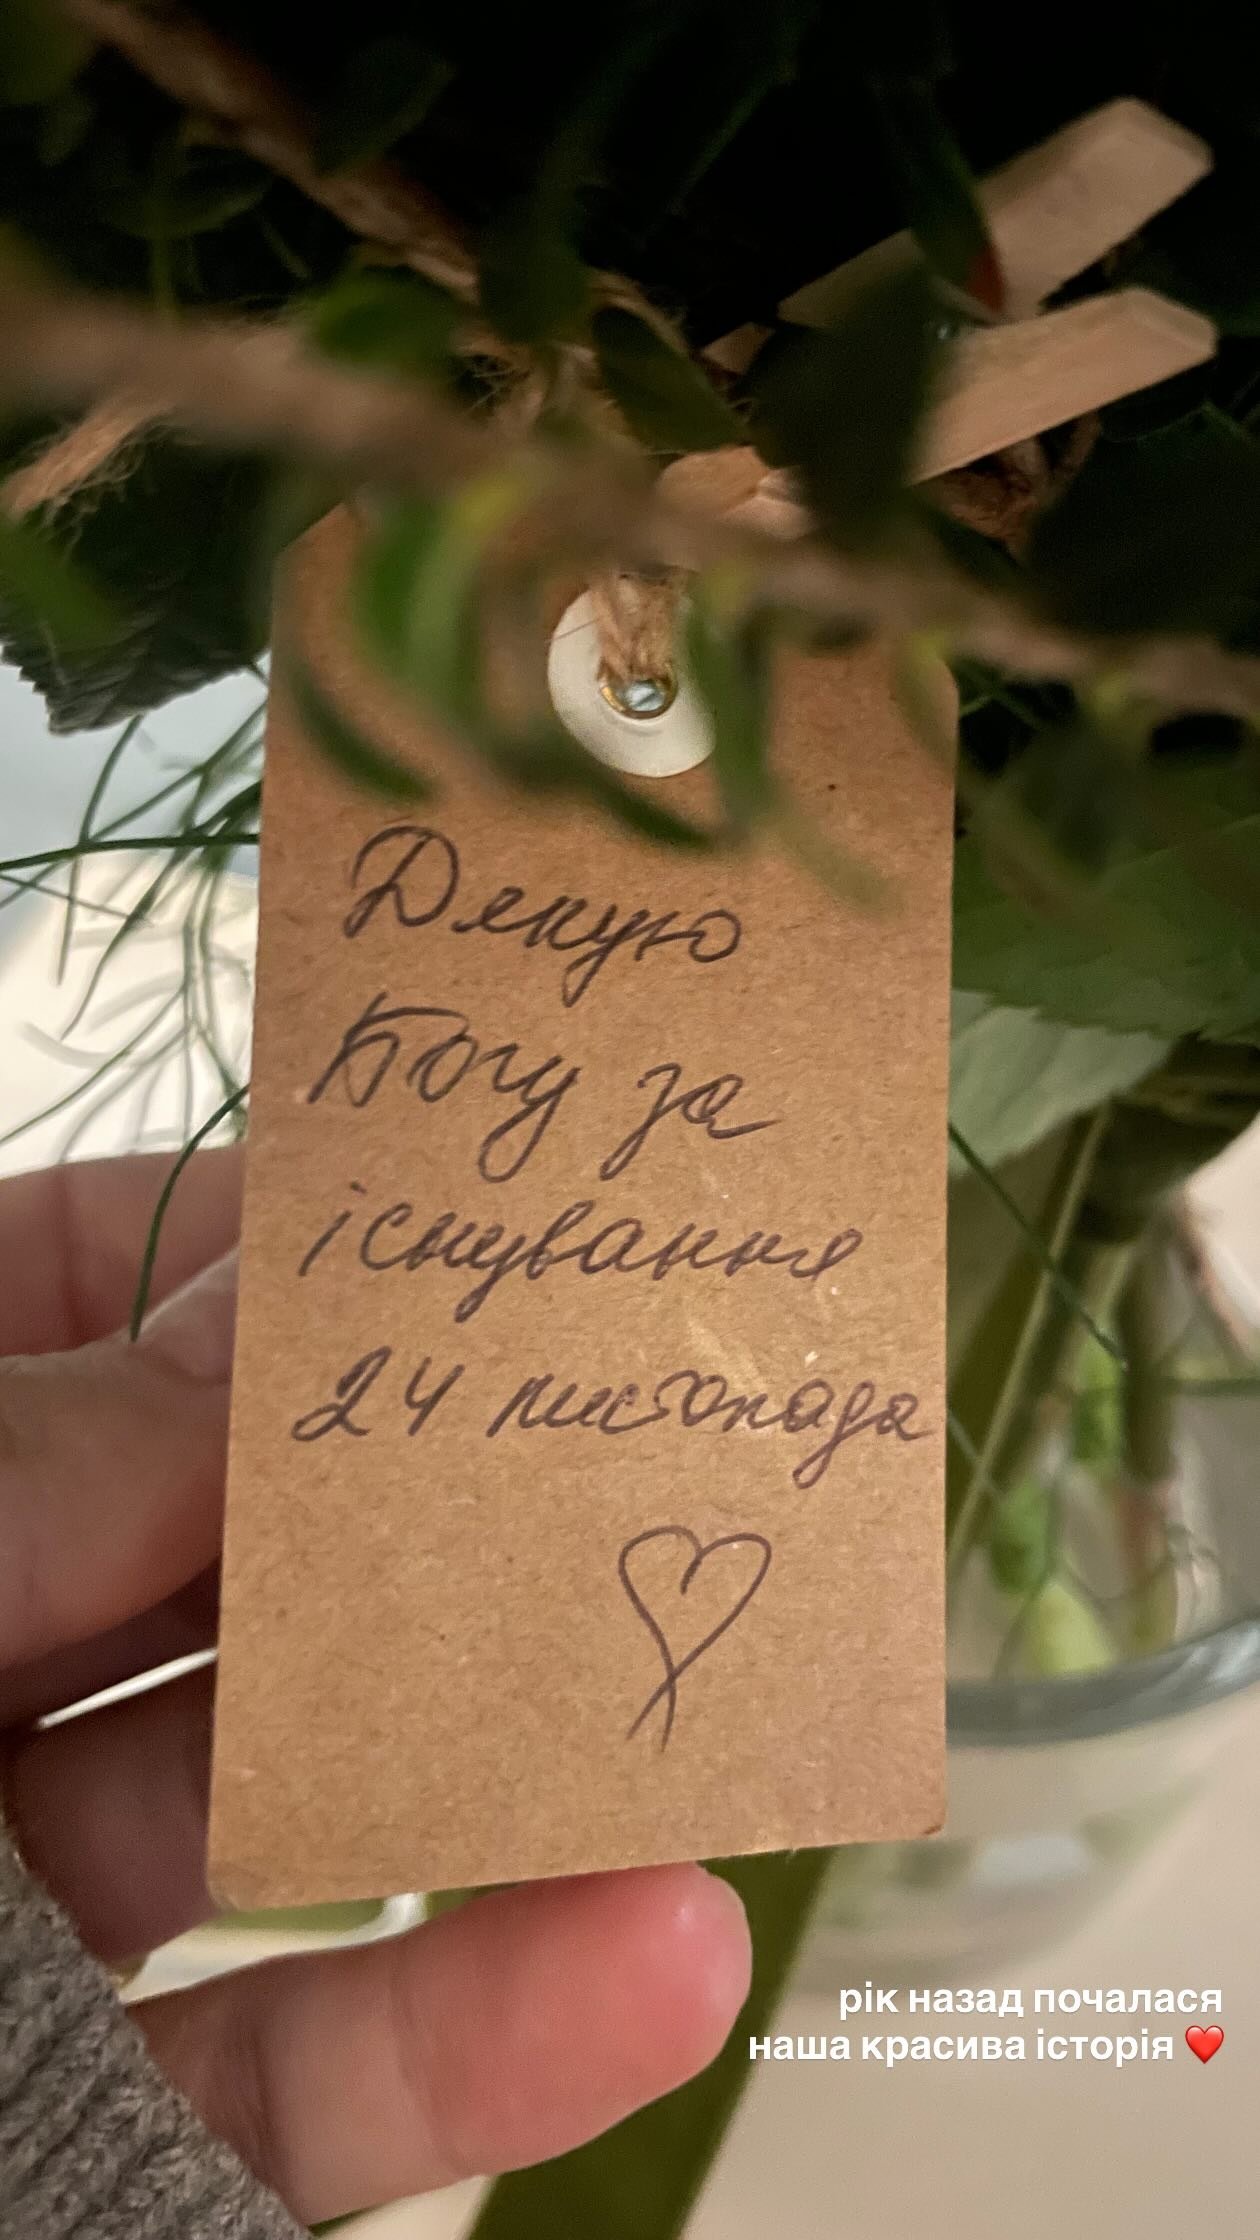 Дякую
Богу за
існування
24 листопада
рік назад почалася
наша красива історія ❤️